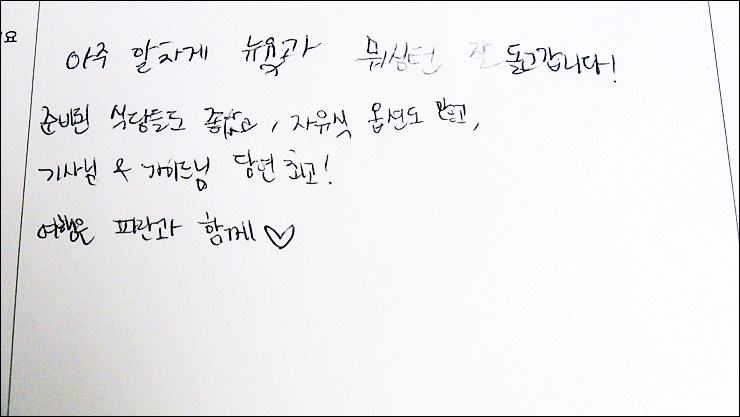 요
아주 알차게 뉴욕과 워싱턴 잘 돌고갑니다!
준비된 식당들도 좋았고, 자유식 옵션도 많고,
기사님 & 가이드님 당연 최고!
여행은 파란과 함께♡